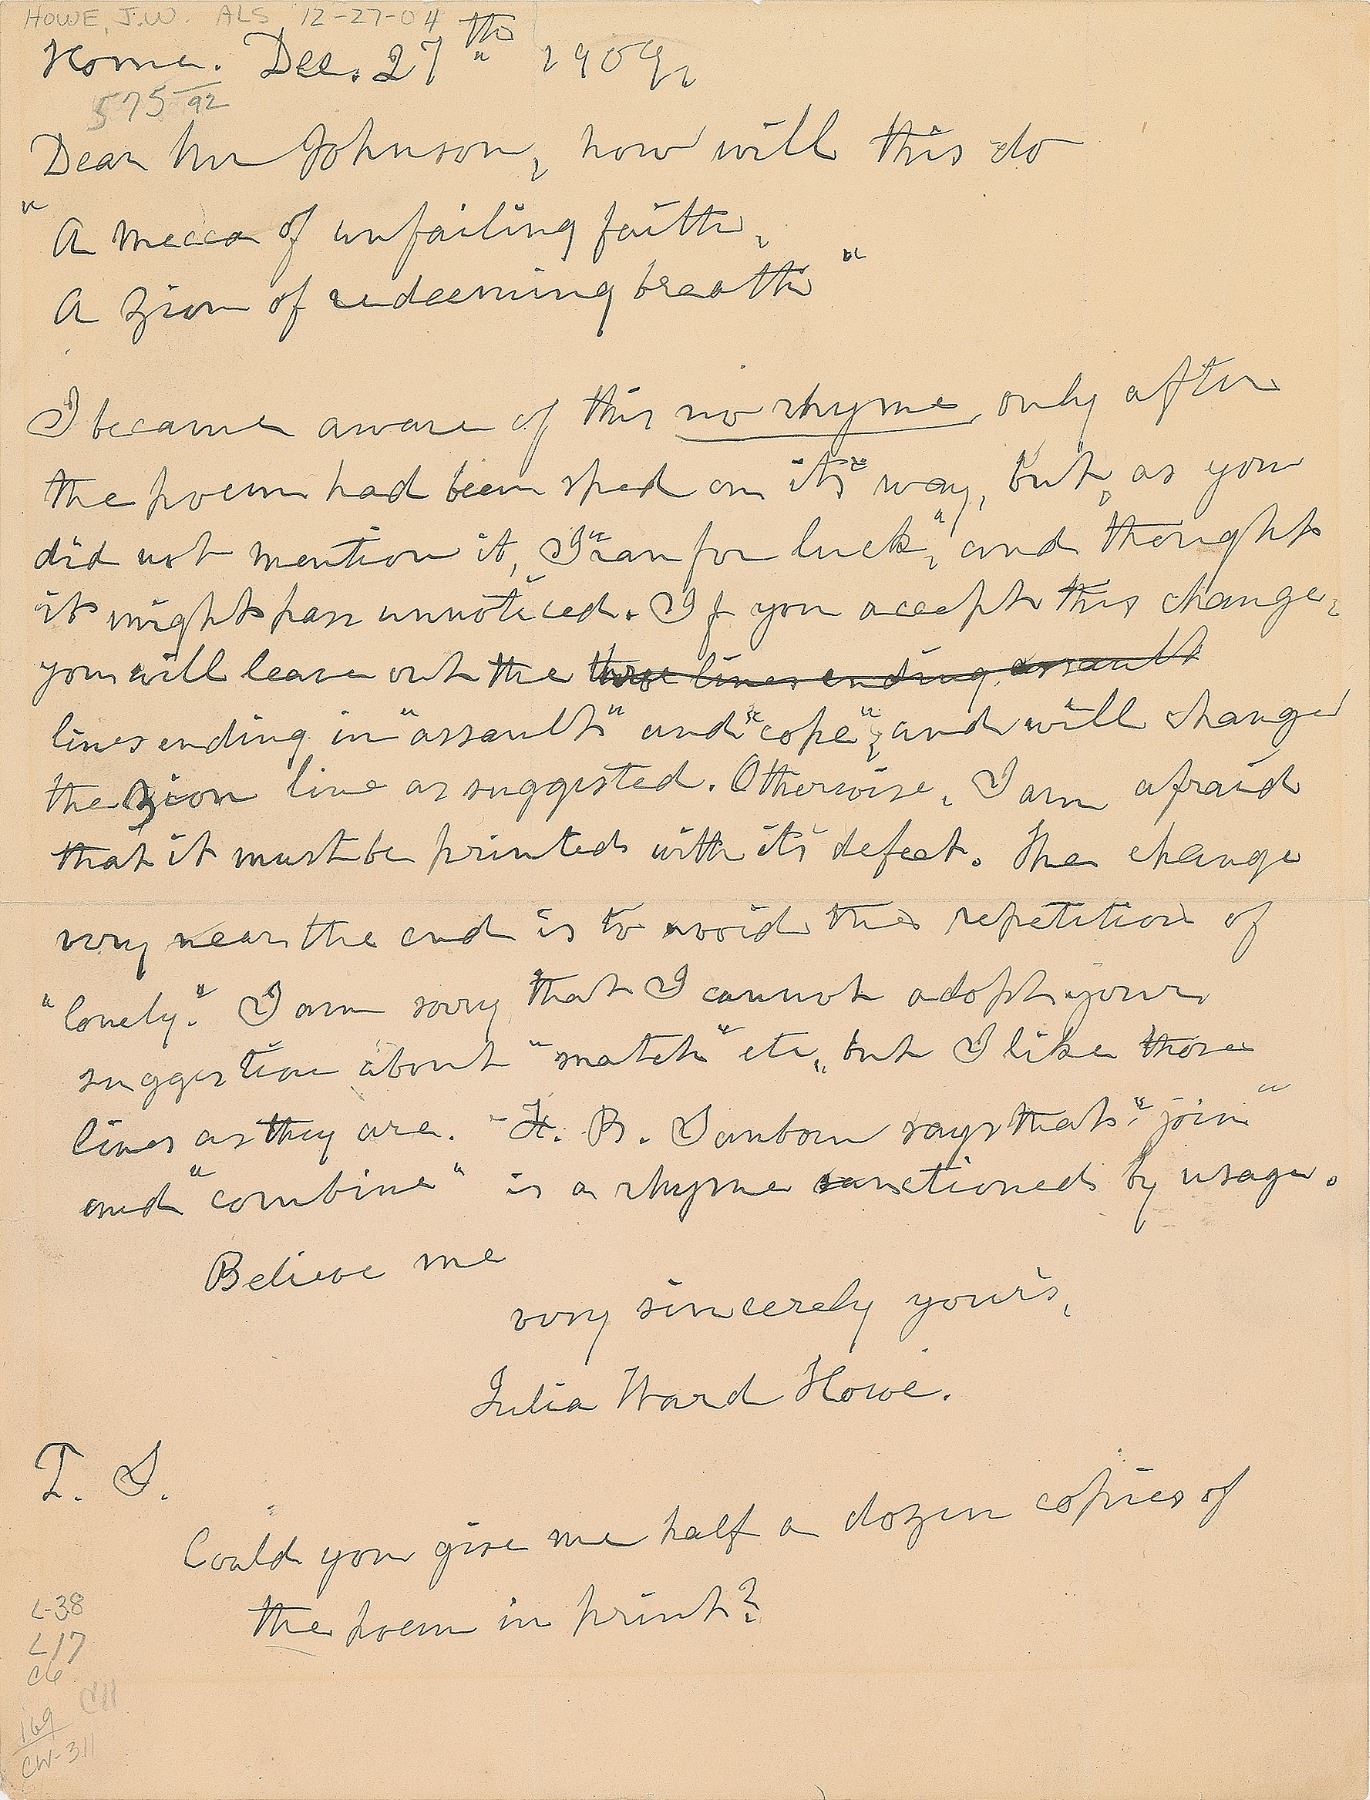 HOWE, J.W. ALS 12-27-04
Home. Dec. 27th 1909,
575 92
Dear Mr Johnson, how will this do
"A mecca of unfailing faith,
A Zion of redeeming breath"
I became aware of this no rhyme, only after
the poem had been sped on its way, but, as you
did not mention it, I "ran for luck," and thought
it might pass unnoticed. If you accept this change,
you will leave out the three lines ending assault
lines ending in "assault" and "cope", and will change
the Zion line as suggested. Otherwise, I am afraid
that it must be printed with its defect. The change
very near the end is to avoid the repetition of
"lonely." I am sorry that I cannot adopt your
suggestion about "match" etc, but I like those
lines as they are. - F. B. Sanborn says that "join"
and "combine" is a rhyme sanctioned by usage.
Believe me
very sincerely yours,
Julia Ward Howe.
P. S.
Could you give me half a dozen copies of
the poem in print?
L-38
L17
C6
C11
169
CW-311